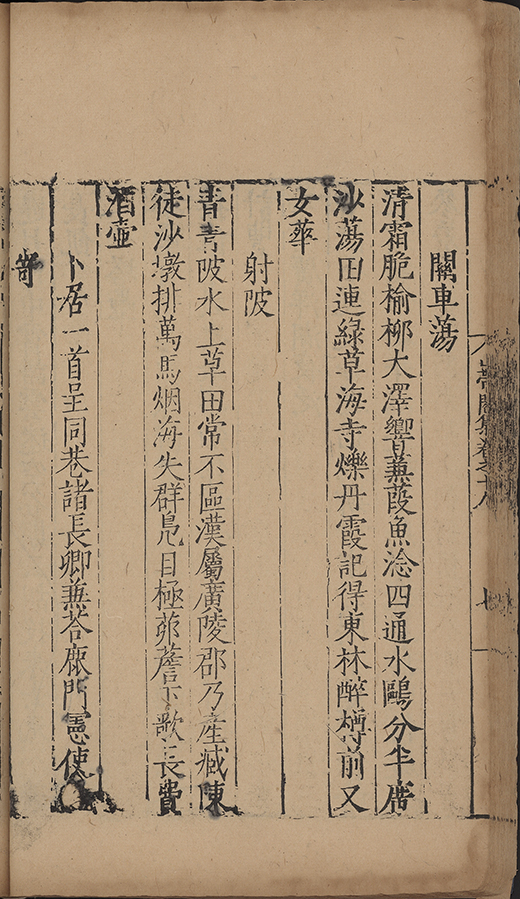 山帶閣集卷之十八
七
關車蕩
清霜脆榆柳大澤響蒹葭魚淰四通水鷗分半席
沙蕩田連綠草海寺爍丹霞記得東林醉樽前又
女蕐
射陂
青青陂水上草田常不區漢屬廣陵郡乃產臧陳
徒沙墩排萬馬烟海失群鳧目極茆薝下歌長費
酒壺
卜居一首呈同巷諸長卿兼荅鹿門憲使
寄